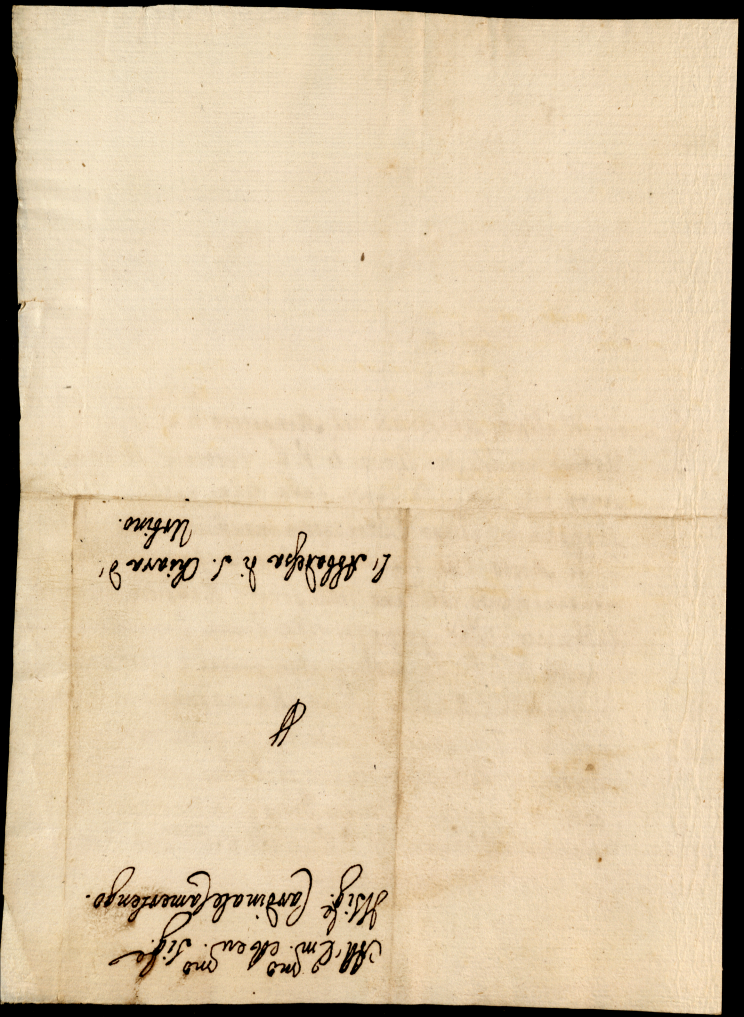 All'Em.mo e Rev.mo Sig.re
Il Sig.re Cardinale Camerlengo.
L'Abbadessa di S. Chiara d'
Urbino.